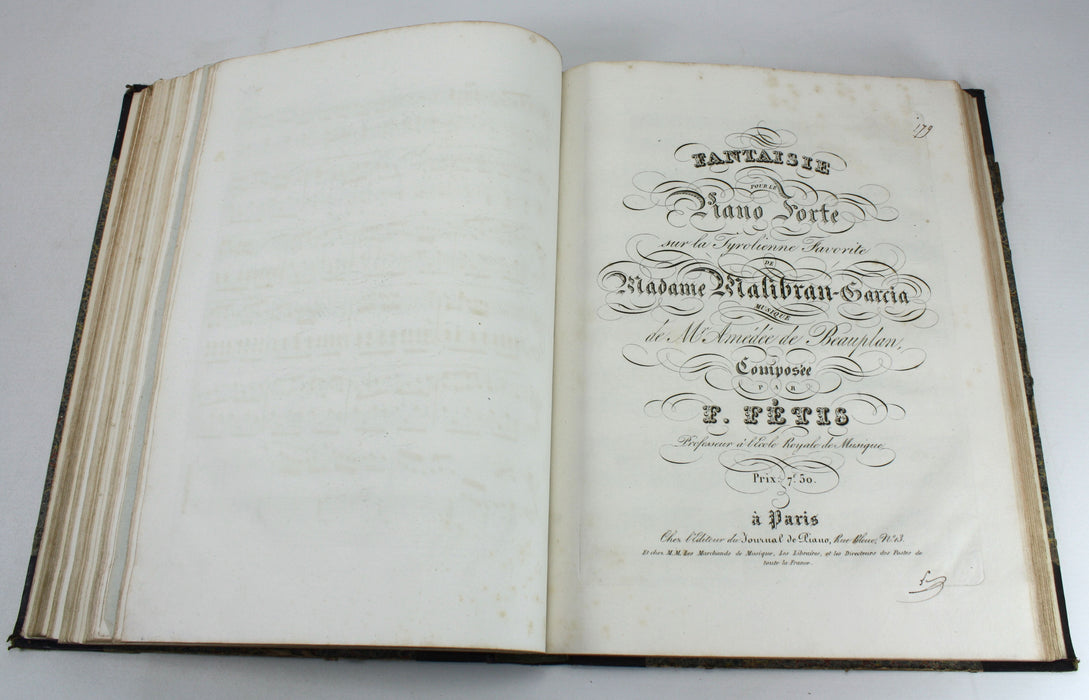 179
FANTAISIE
POUR LE
Piano Forte
sur la Tyrolienne Favorite
DE
Madame Malibran-Garcia
MUSIQUE
de Mr Amédée de Beauplan,
Composée
PAR
F. FÉTIS
Professeur à l'Ecole Royale de Musique
Prix: 7f 50.
à Paris
Chez l'Editeur du Journal de Piano, Rue Bleue, No 13.
Et chez M.M. Les Marchands de Musique, Les Libraires, et les Directeurs des Postes de
toute la France.